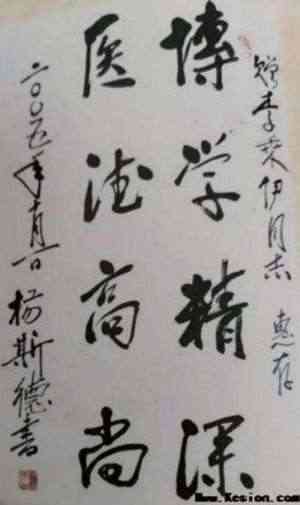 赠李奕伊同志 惠存
博学精深
医德高尚
二〇〇五年十月一日 杨斯德书
www.Kesion.com